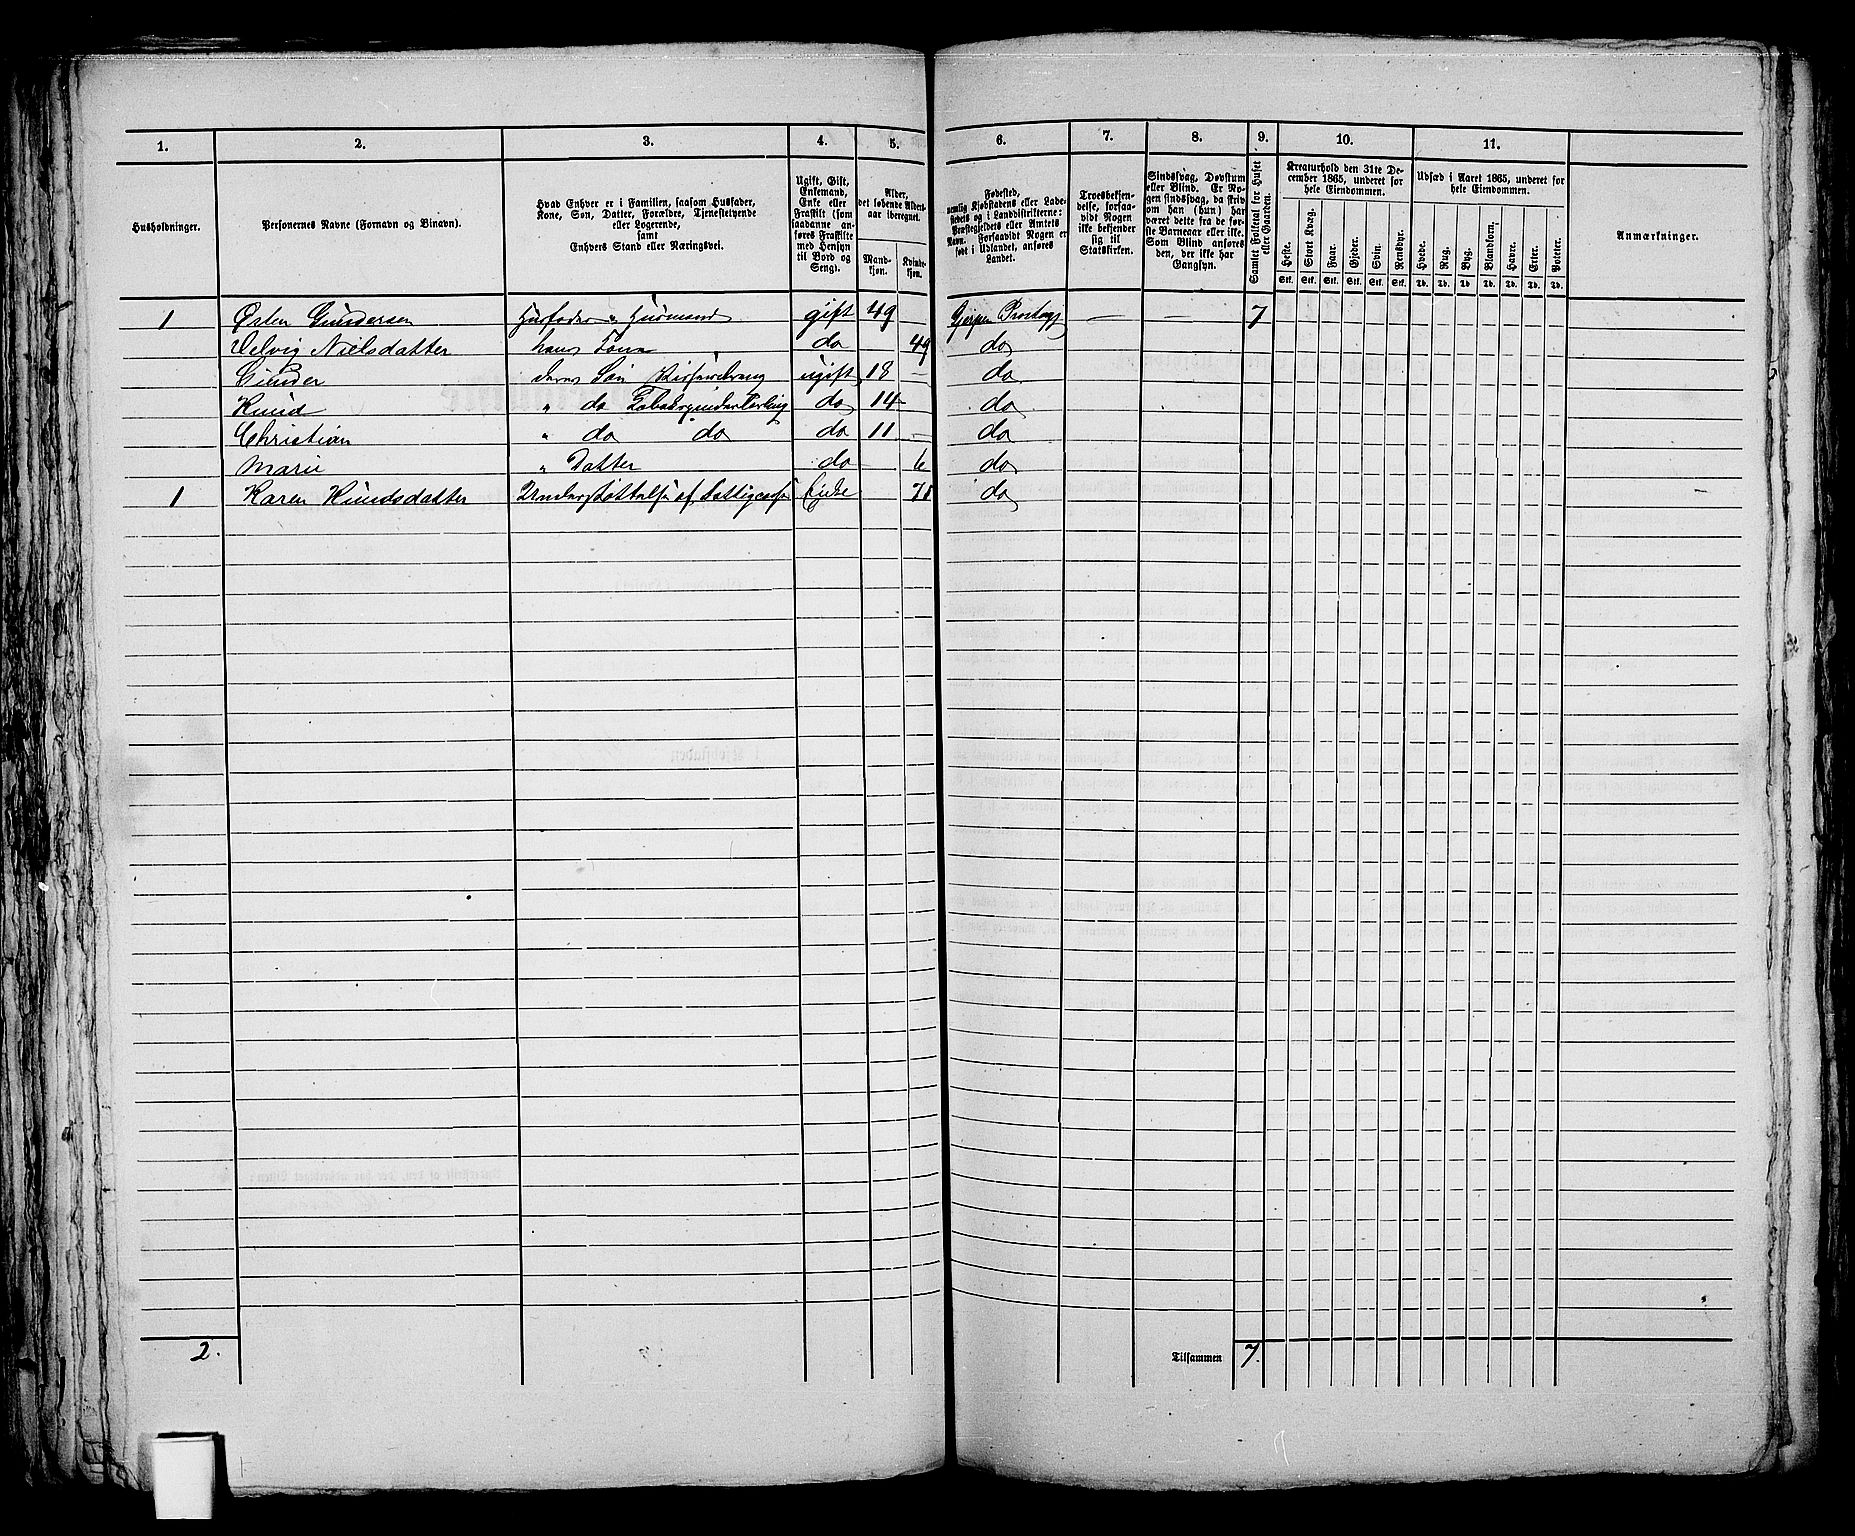 1. 2. 3. 4. 5. 6. 7. 8. 9. 10. 11.
Husholdninger.
Personernes Navne (Fornavn og Binavn).
Hvad Enhver er i Familien, saasom Husfader,
Kone, Søn, Datter, Forældre, Tjenestetyende
eller Logerende,
samt
Enhvers Stand eller Næringsvei.
Ugift, Gift,
Enkemand,
Enke eller
Fraskilt (som
saadanne an-
føres Fraskilte
med Hensyn
til Bord og
Seng).
Alder,
det løbende Alders-
aar iberegnet.
Mand-
kjøn.
Kvinde-
kjøn.
Fødested,
nemlig Kjøbstadens eller Lade-
stedets og i Landdistrikterne:
Præstegjeldets eller Amtets
Navn. Forsaavidt Nogen er
født i Udlandet, anføres
Landet.
Troesbekjen-
delse, forsaa-
vidt Nogen
ikke bekjender
sig til
Statskirken.
Sindssvag, Døvstum
eller Blind. Er No-
gen sindssvag, da skriv
om han (hun) har
været dette fra de før-
ste Barneaar eller ikke.
Som Blind anføres
den, der ikke har
Gangsyn.
Samlet Folketal for Huset
eller Gaarden.
Kreaturhold den 31te De-
cember 1865, underet for
hele Eiendommen.
Heste. Stort Kvæg. Faar. Gjeder. Svin. Rensdyr.
Stk. Stk. Stk. Stk. Stk. Stk.
Udsæd i Aaret 1865, underet for
hele Eiendommen.
Hvede. Rug. Byg. Blandkorn. Havre. Erter. Poteter.
Td. Td. Td. Td. Td. Td. Td.
Anmærkninger.
1 Østen Gundersen Husfader Husmand gift 49 Gjerpen Prstegj — — 7
Velvig Nielsdatter hans Kone do 49 do
Gunder deres Søn ugift 18 — do
Knud " do do 14 do
Christian " do do do 11 — do
Marie " Datter do 6 do
1 Karen Knudsdatter Understøttelse af Fattigcasse Enke 71 do
2. Tilsammen 7.